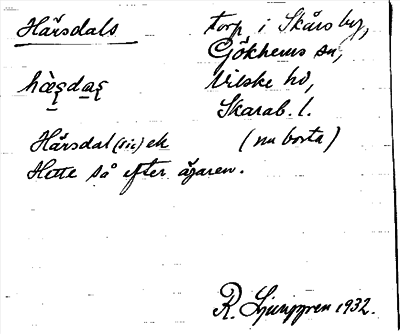 Hårsdals torp i Skårs by,
Gökhems sn,
Vilske hd,
Skarab. l.
Hårsdal (sic) ek (nu borta)
Hette så efter ägaren.
R. Ljunggren 1932.